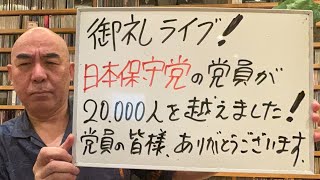 御礼ライブ!
日本保守党の党員が
20.000人を越えました!
党員の皆様、ありがとうございます.